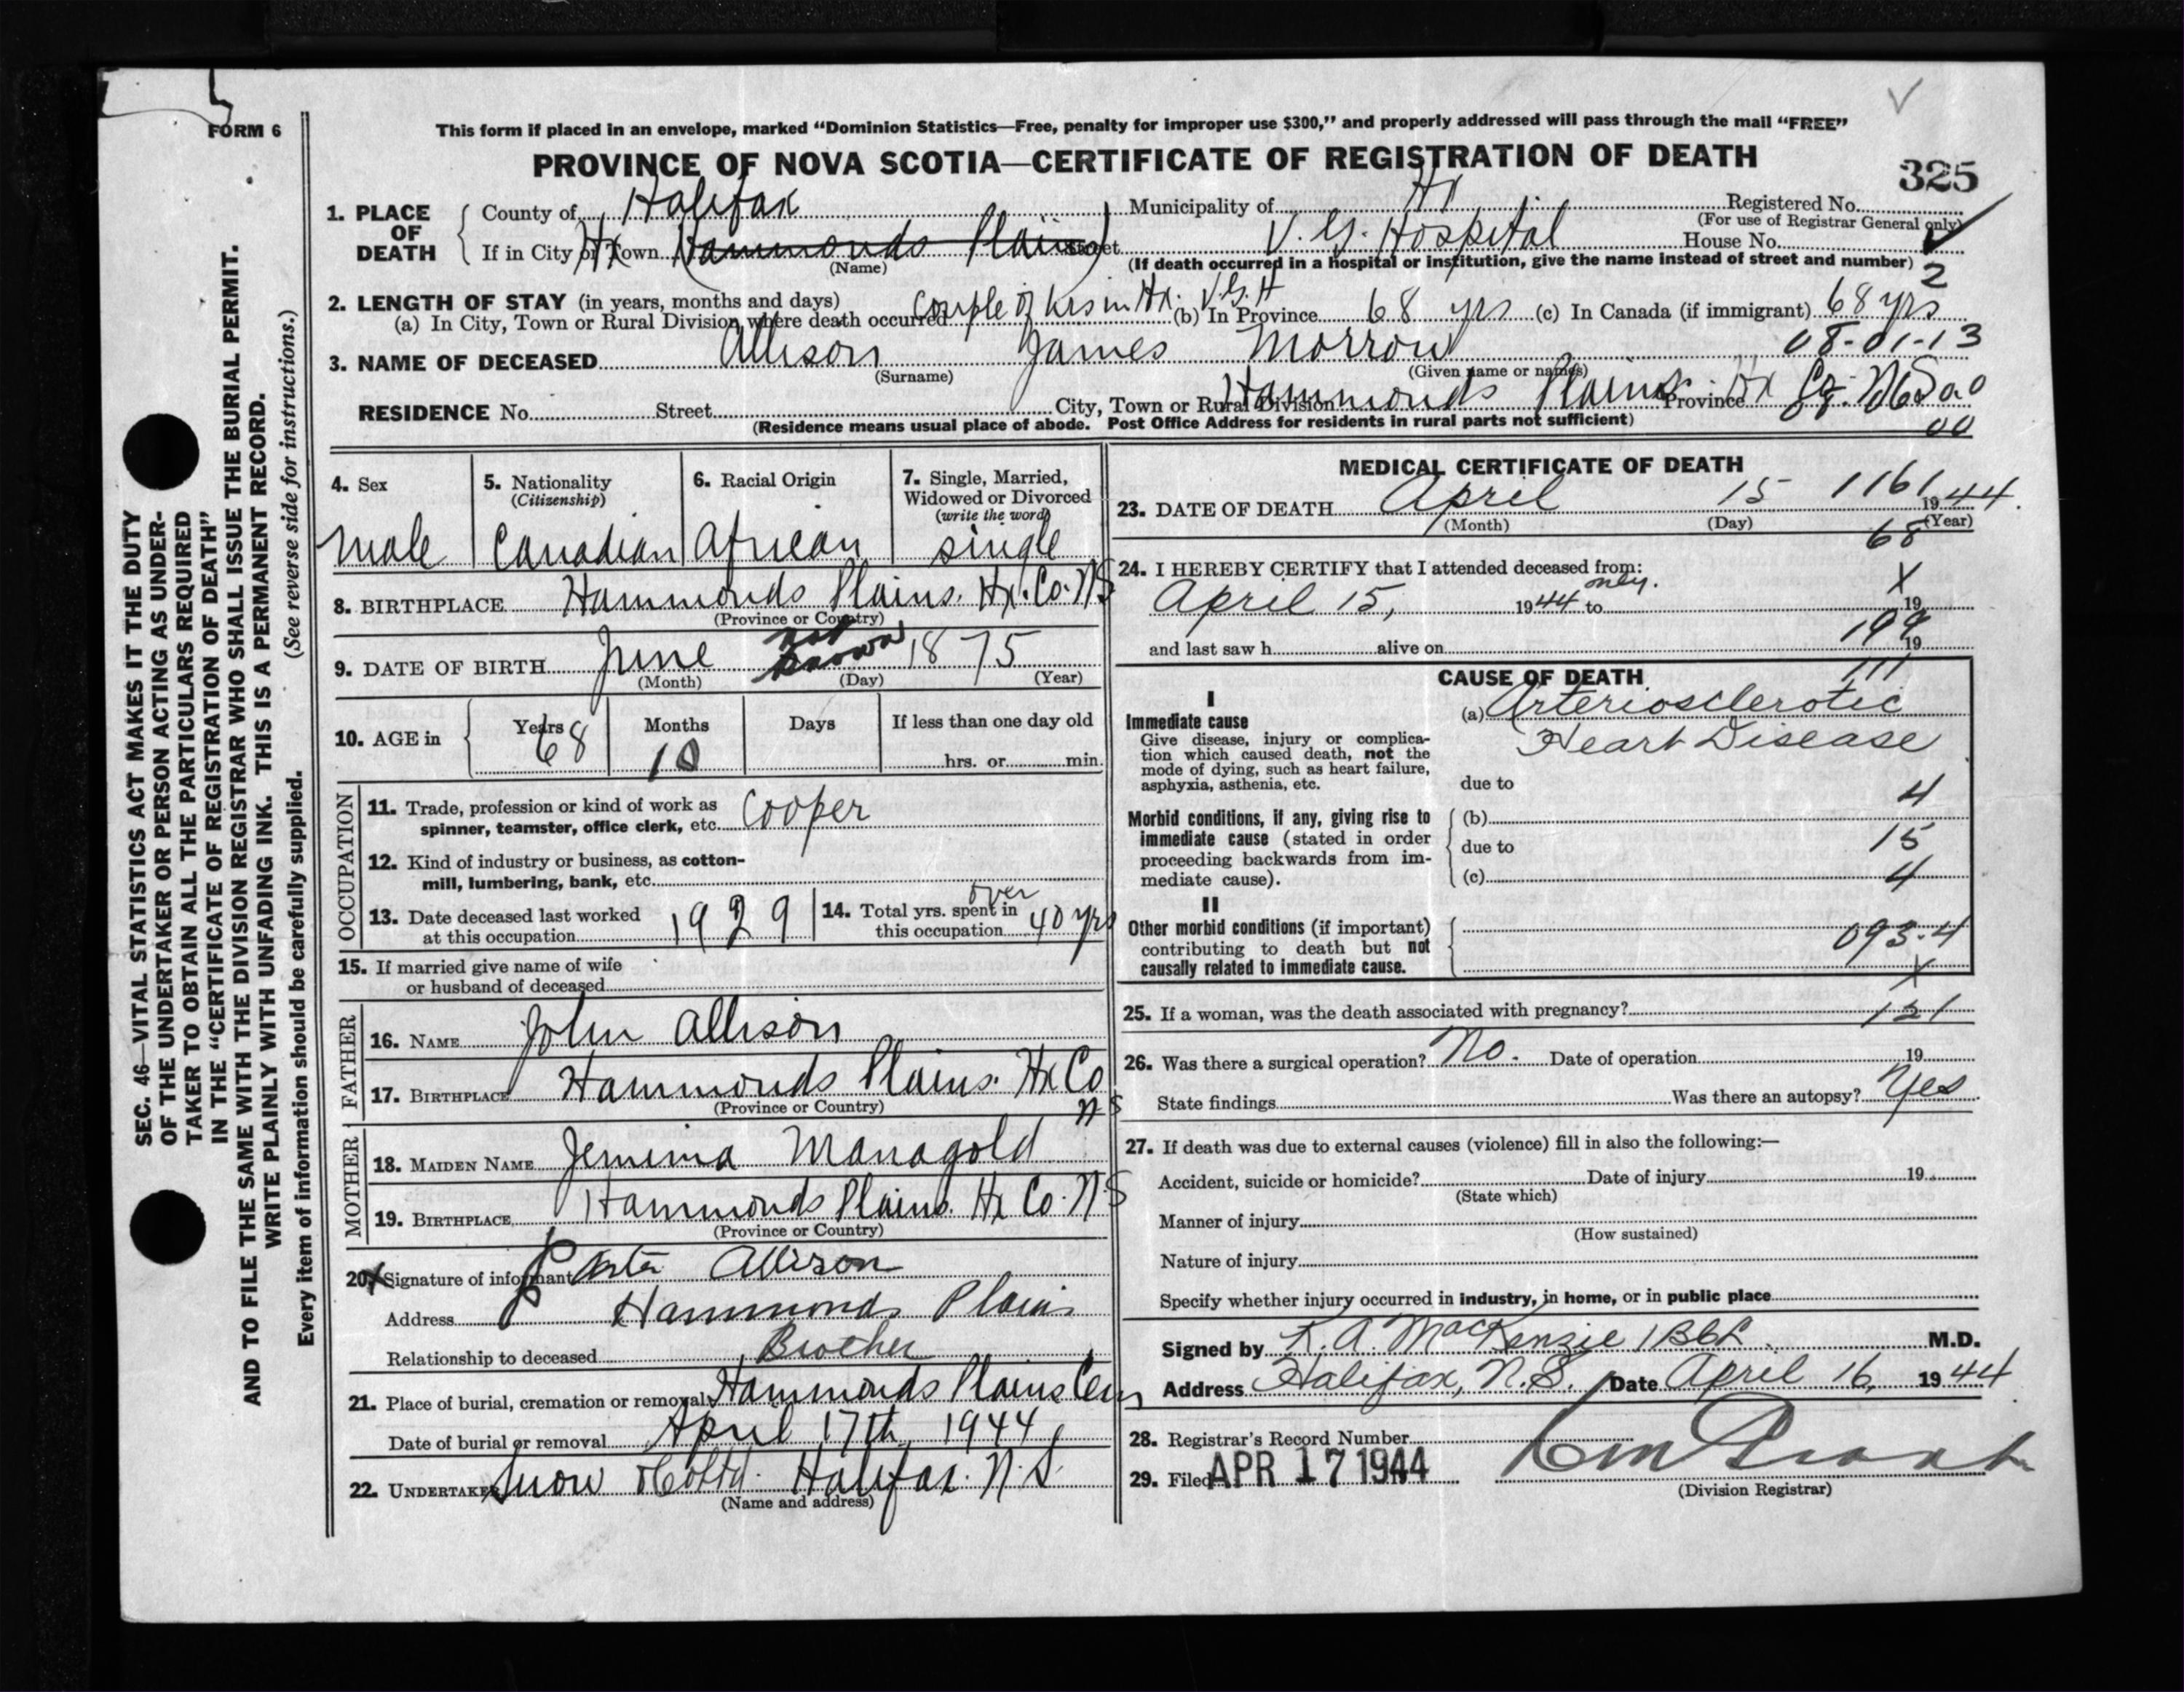 FORM 6
This form if placed in an envelope, marked “Dominion Statistics—Free, penalty for improper use $300,” and properly addressed will pass through the mail “FREE”
PROVINCE OF NOVA SCOTIA—CERTIFICATE OF REGISTRATION OF DEATH
325
1. PLACE OF DEATH
County of Halifax Municipality of Hx Registered No.
(For use of Registrar General only)
If in City or Town Hx (Hammonds Plains) Street V. G. Hospital House No.
(Name) (If death occurred in a hospital or institution, give the name instead of street and number)
2
2. LENGTH OF STAY (in years, months and days)
(a) In City, Town or Rural Division where death occurred Couple of hrs in Hx. V.G.H (b) In Province 68 yrs (c) In Canada (if immigrant) 68 yrs
08-01-13
3. NAME OF DECEASED Allison James Morrow
(Surname) (Given name or names)
RESIDENCE No. Street City, Town or Rural Division Hammonds Plains Province Hx Co. N.S.
(Residence means usual place of abode. Post Office Address for residents in rural parts not sufficient)
00
4. Sex 5. Nationality (Citizenship) 6. Racial Origin 7. Single, Married, Widowed or Divorced (write the word)
Male Canadian African single
8. BIRTHPLACE Hammonds Plains. Hx. Co. N.S
(Province or Country)
9. DATE OF BIRTH June not known 1875
(Month) (Day) (Year)
10. AGE in Years Months Days If less than one day old
68 10 hrs. or min.
OCCUPATION
11. Trade, profession or kind of work as spinner, teamster, office clerk, etc. Cooper
12. Kind of industry or business, as cotton-mill, lumbering, bank, etc.
13. Date deceased last worked at this occupation 1929
14. Total yrs. spent in this occupation over 40 yrs
15. If married give name of wife or husband of deceased
FATHER
16. NAME John Allison
17. BIRTHPLACE Hammonds Plains. Hx Co N S
(Province or Country)
MOTHER
18. MAIDEN NAME Jemima Managold
19. BIRTHPLACE Hammonds Plains. Hx Co. N.S
(Province or Country)
20. X Signature of informant Allison
Address Hammonds Plains
Relationship to deceased Brother
21. Place of burial, cremation or removal Hammonds Plains Cem
Date of burial or removal April 17th 1944
22. UNDERTAKER Snow & Co Ltd. Halifax. N.S.
(Name and address)
MEDICAL CERTIFICATE OF DEATH
23. DATE OF DEATH April 15 1161 1944
(Month) (Day) (Year)
68
24. I HEREBY CERTIFY that I attended deceased from:
April 15, 1944 to only. 19
X
and last saw h alive on 19
199
CAUSE OF DEATH
111
I
Immediate cause
Give disease, injury or complica-
tion which caused death, not the
mode of dying, such as heart failure,
asphyxia, asthenia, etc.
(a) Arteriosclerotic
Heart Disease
due to
4
Morbid conditions, if any, giving rise to
immediate cause (stated in order
proceeding backwards from im-
mediate cause).
(b)
due to 15
(c) 4
II
Other morbid conditions (if important)
contributing to death but not
causally related to immediate cause.
093-4
X
25. If a woman, was the death associated with pregnancy? 121
26. Was there a surgical operation? No. Date of operation 19
State findings Was there an autopsy? Yes
27. If death was due to external causes (violence) fill in also the following:—
Accident, suicide or homicide? Date of injury 19
(State which)
Manner of injury
(How sustained)
Nature of injury
Specify whether injury occurred in industry, in home, or in public place
Signed by K. A. MacKenzie M.D.
Address Halifax, N.S. Date April 16, 1944
28. Registrar's Record Number
29. Filed APR 17 1944
(Division Registrar)
SEC. 46—VITAL STATISTICS ACT MAKES IT THE DUTY
OF THE UNDERTAKER OR PERSON ACTING AS UNDER-
TAKER TO OBTAIN ALL THE PARTICULARS REQUIRED
IN THE “CERTIFICATE OF REGISTRATION OF DEATH”
AND TO FILE THE SAME WITH THE DIVISION REGISTRAR WHO SHALL ISSUE THE BURIAL PERMIT.
WRITE PLAINLY WITH UNFADING INK. THIS IS A PERMANENT RECORD.
(See reverse side for instructions.)
Every item of information should be carefully supplied.